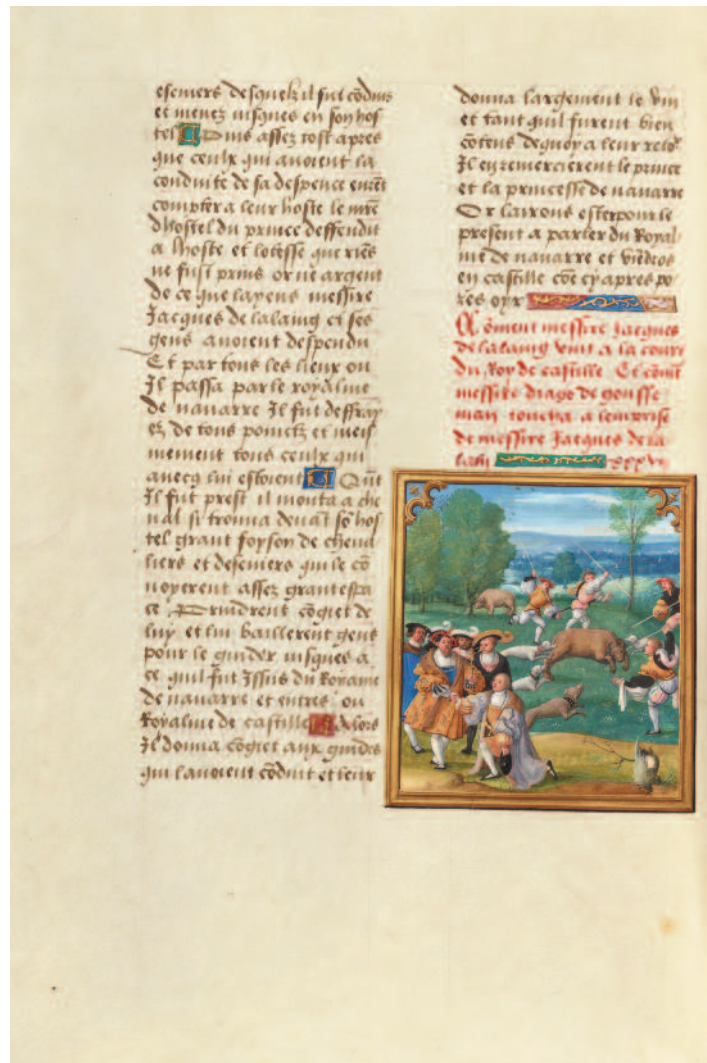 escuiers desquelz il fut cōduis
et menez iusques en son hos
tel Puis assez tost apres
que ceulx qui auoient la
conduite de sa despence eurēt
compter a leur hoste le mrē
dhostel du prince deffendit
a lhoste et lotesse que riēs
ne fust prins or ne argent
de ce que layens messire
Jacques de lalaing et ses
gens auoient despendu
Et par tous les lieux ou
Il passa par le royalme
de nauarre Il fut deffray
ez de tous pointz et meis
mement tous ceulx qui
auecq lui estoient Quāt
Il fut prest il monta a che
ual si trouua deuāt sō hos
tel grant foyson de cheua
liers et descuiers qui le cō
uoyerent assez grant espa
ce Prindrent cōgiet de
luy et lui baillerent gens
pour le guider iusques a
ce quil fut Issus du Royame
de nauarre et entres ou
Royalme de castille A lors
Il donna cōgiet aux guides
qui lauoient cōduit et leur
donna largement le vin
et tant quil furent bien
cōtens dequoy a leur
Il en remercierent le prince
et la princesse de nauarre
Or lairons ester pour le
present a parler du Royal
me de nauarre et
en castille cōe cy apres po
res oyr
Cōment messire Jacques
de lalaing vint a la court
du Roy de castille Et cōmēt
messire diago de gousse
man toucha a lemprise
de messire Jacques de la
lain